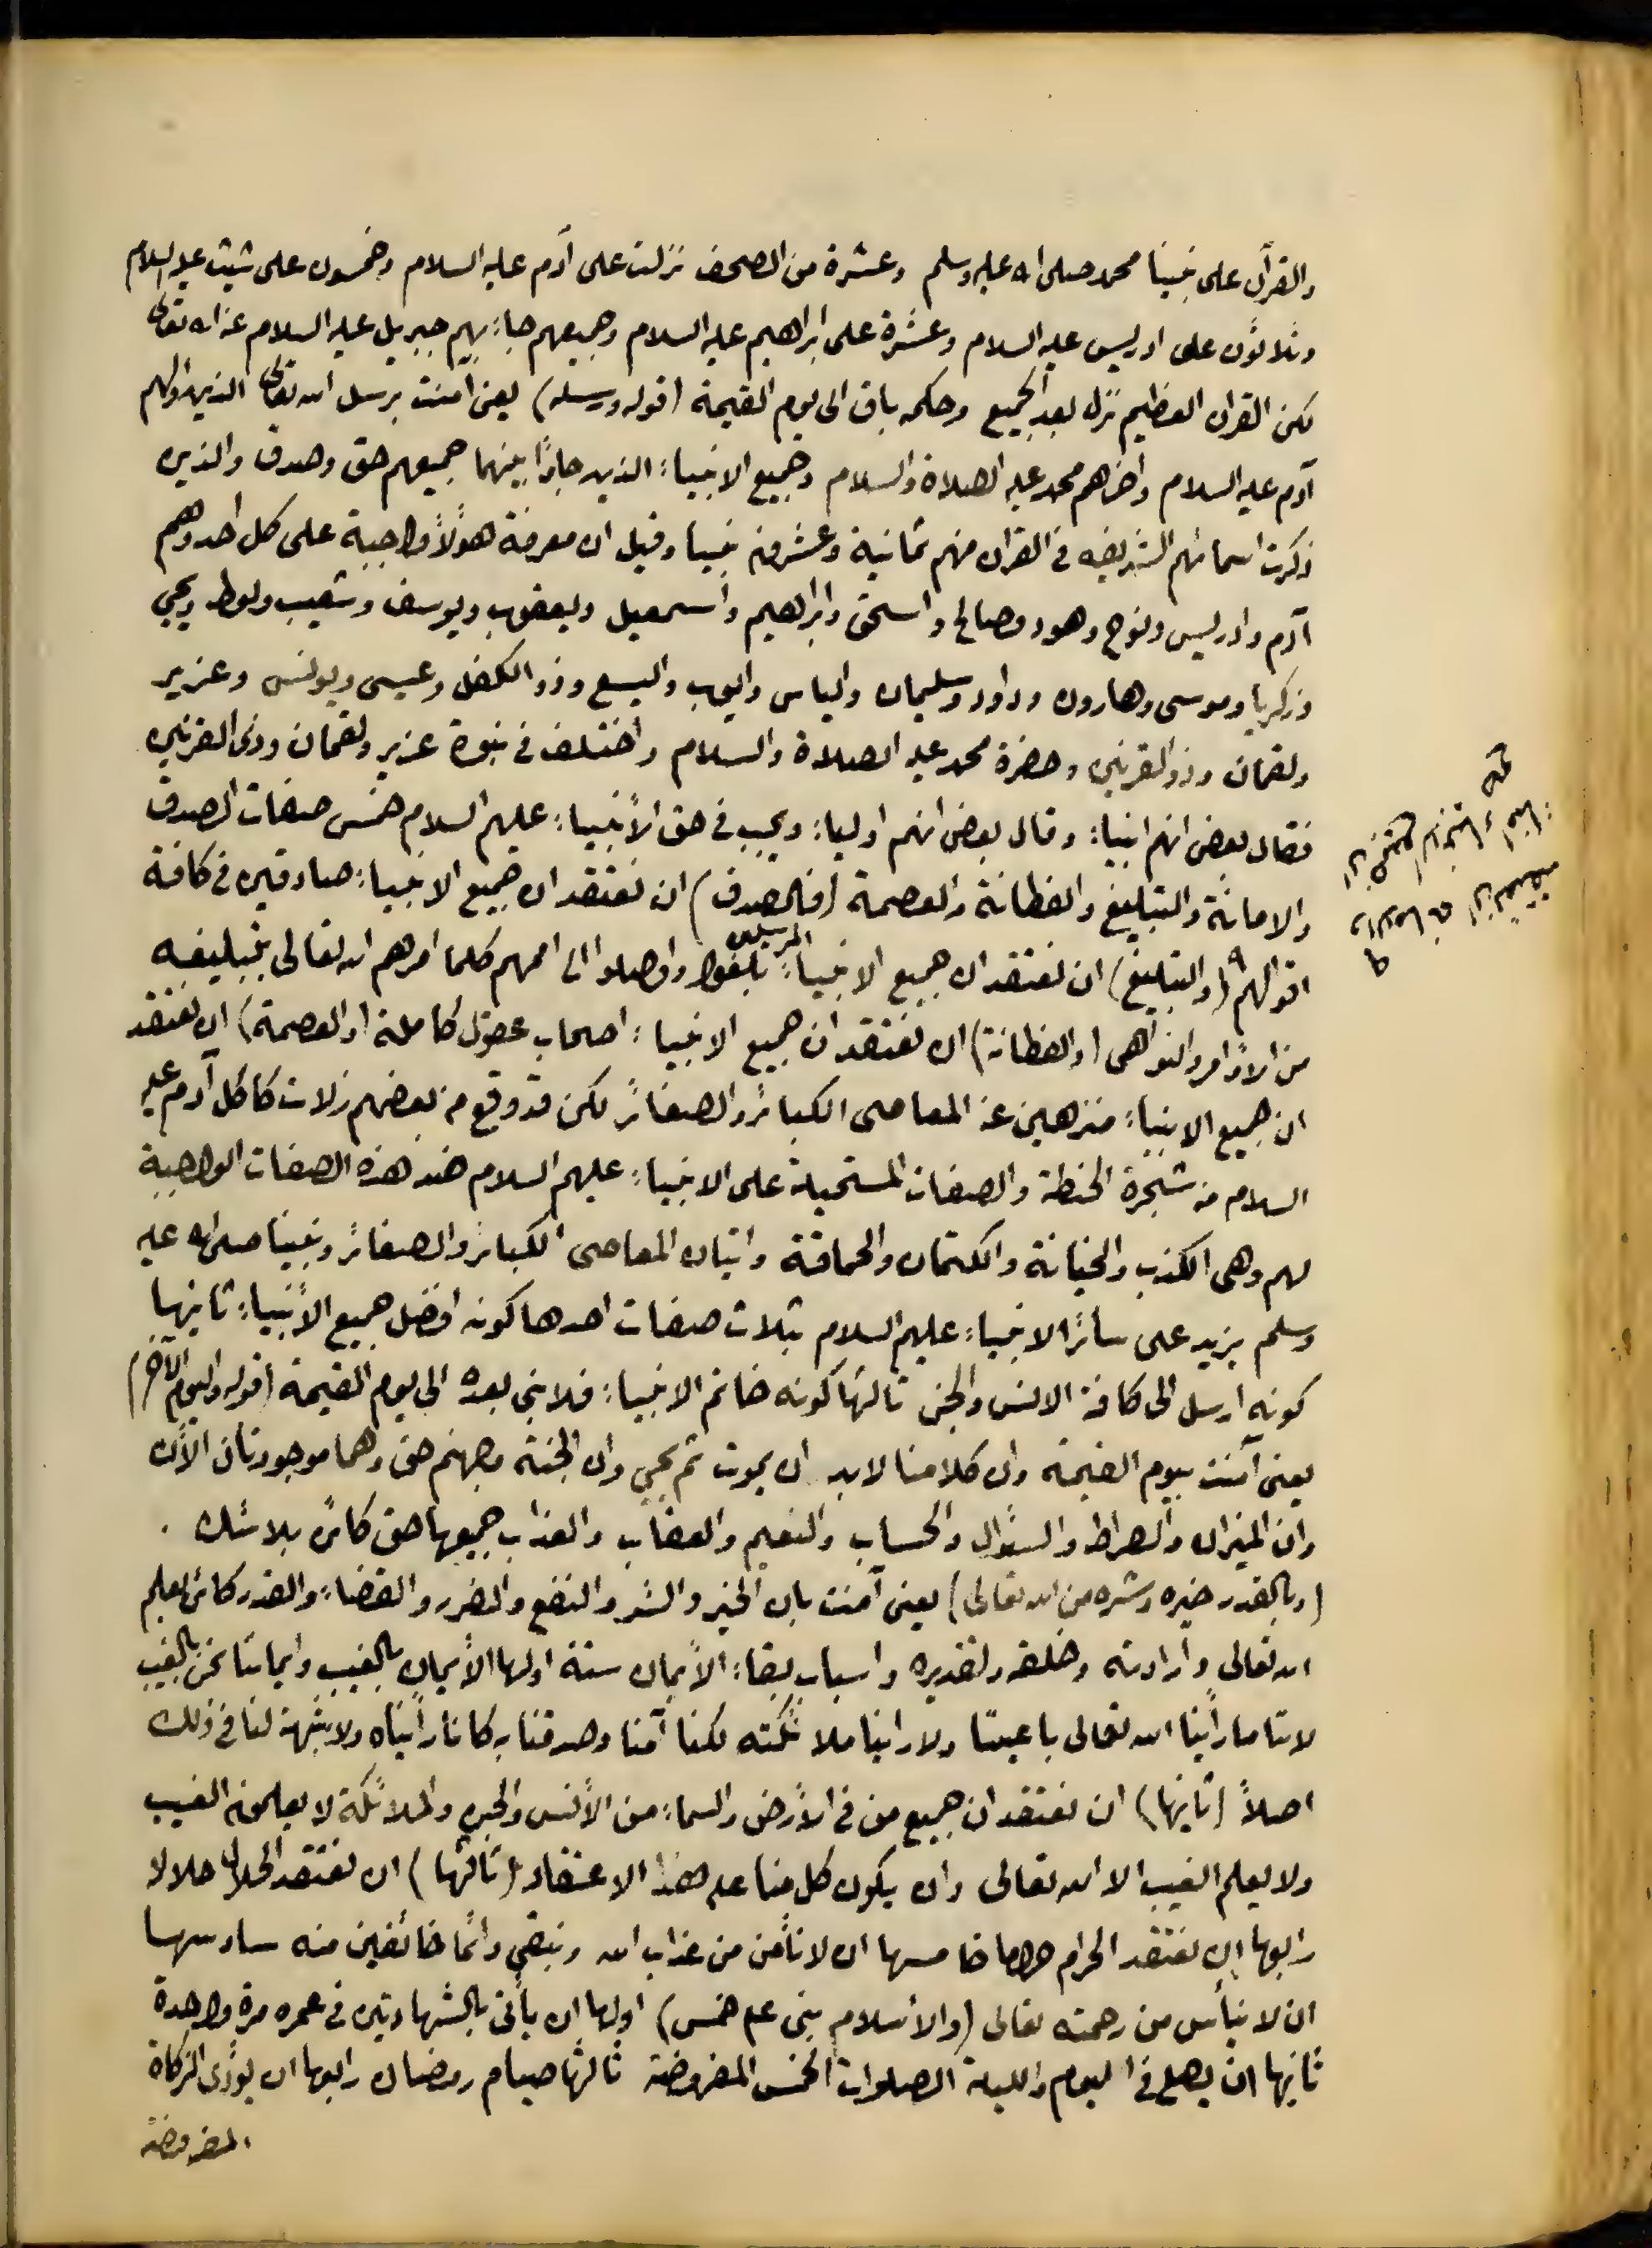 والقرآن على نبينا محمد صلى الله عليه وسلم وعشرة من الصحف نزلت على آدم عليه السلام وخمسون على شيث عليه السلام
وثلاثون على ادريس عليه السلام وعشرة على ابراهيم عليه السلام وجميعهم جاء بهم جبريل عليه السلام عن الله تعالى
لكن القران العظيم نزل بعد الجميع وحكمه باق الى يوم القيمة (قوله ورسله) يعنى آمنت برسل الله تعالى الذين اولهم
آدم عليه السلام واخرهم محمد عليه الصلاة والسلام وجميع الانبياء الذين جاؤا بينهما جميعهم حق وصدق والذين
ذكرت اسمائهم الشريفه فى القران منهم ثمانية وعشرون نبيا وقيل ان معرفة هؤلاً واجبة على كل احد وهم
آدم وادريس ونوح وهود وصالح واسحق وابراهيم واسمعيل ويعقوب ويوسف وشعيب ولوط ويحيى
وزكريا وموسى وهارون وداود وسليمان والياس وايوب واليسع وذو الكفل وعيسى ويونس وعزير
ولقمان وذو القرنين وحضرة محمد عليه الصلاة والسلام واختلف فى نبوة عزير ولقمان وذى القرنين
فقال بعض انهم انبياء وقال بعض انهم اولياء ويجب فى حق الأنبياء عليهم السلام خمس صفات الصدق
والامانة والتبليغ والفطانة والعصمة (فالصدق) ان نعتقد ان جميع الانبياء صادقين فى كافة
اقوالهم (والتبليغ) ان نعتقد ان جميع الانبياء المرسلين بلغوا واوصلوا الى اممهم كلما امرهم الله تعالى بتبليغه
من الاوامر والنواهى (والفطانة) ان نعتقد ان جميع الانبياء اصحاب عقول كاملة (والعصمة) ان نعتقد
ان جميع الانبياء منزهين عن المعاصى الكبائر والصغائر لكن قد وقع من بعضهم زلات كاكل آدم عليه
السلام من شجرة الحنطة والصفات المستحيلة على الانبياء عليهم السلام ضد هذه الصفات الواجبة
لهم وهى الكذب والخيانة والكتمان والحماقة واتيان المعاصى الكبائر والصغائر ونبينا صلى الله عليه
وسلم يزيد على سائر الانبياء عليهم السلام بثلاث صفات احدها كونه افضل جميع الأنبياء ثانيها
كونه ارسل الى كافة الانس والجن ثالثها كونه خاتم الانبياء فلا نبى بعده الى يوم القيمة (قوله واليوم الآخر)
يعنى آمنت بيوم القيمة وان كلا منا لابد ان يموت ثم يحيى وان الجنة وجهنم حق وهما موجودتان الأن
وان الميزان والصراط والسؤال والحساب والنعيم والعقاب والعذاب جميعها حق كائن بلا شك .
(وبالقدر خيره وشره من الله تعالى) يعنى آمنت بان الخير والشر والنفع والضرر والقضاء والقدر كائن بعلم
الله تعالى وارادته وخلقه وتقديره واسباب بقاء الأيمان ستة اولها الأيمان بالغيب وايماننا نحن بالغيب
لاننا ما رأينا الله تعالى باعيننا ولا راينا ملائكته لكنا آمنا وصدقنا به كاننا رأيناه ولا شبهة لنا فى ذلك
اصلاً (ثانيها) ان نعتقد ان جميع من فى الأرض والسماء من الأنس والجن والملائكة لا يعلمون الغيب
ولا يعلم الغيب الا الله تعالى وان يكون كل منا على هذا الاعتقاد (ثالثها) ان نعتقد الحلال حلالا
رابعها ان نعتقد الحرام حراما خامسها ان لا نأمن من عذاب الله ونبقى دائما خائفين منه سادسها
ان لا نيأس من رحمته تعالى (والأسلام بنى على خمس) اولها ان يأتى بالشهادتين فى عمره مرة واحدة
ثانيها ان يصلى فى اليوم والليلة الصلوات الخمس المفروضة ثالثها صيام رمضان رابعها ان يؤدى الزكاة
المفروضة